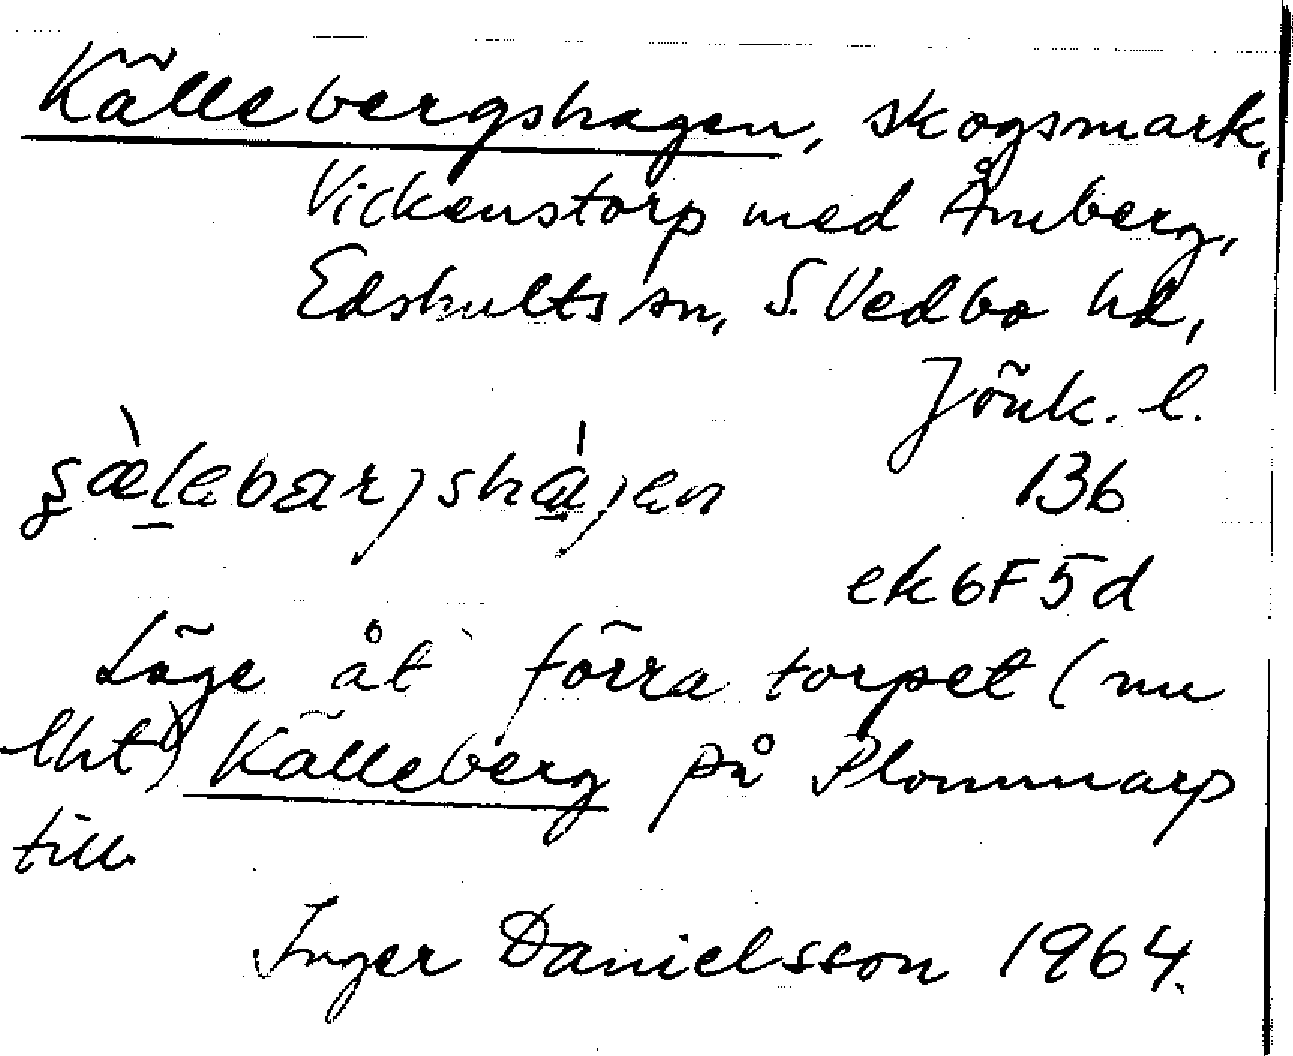 Källebergshagen, skogsmark,
Vickenstorp med Åmberg,
Edshults sn, S. Vedbo hd,
Jönk. l.
136
ek 6F5d
Läge åt förra torpet (nu
lht) Källeberg på Plommarp
till.
Inger Danielsson 1964.